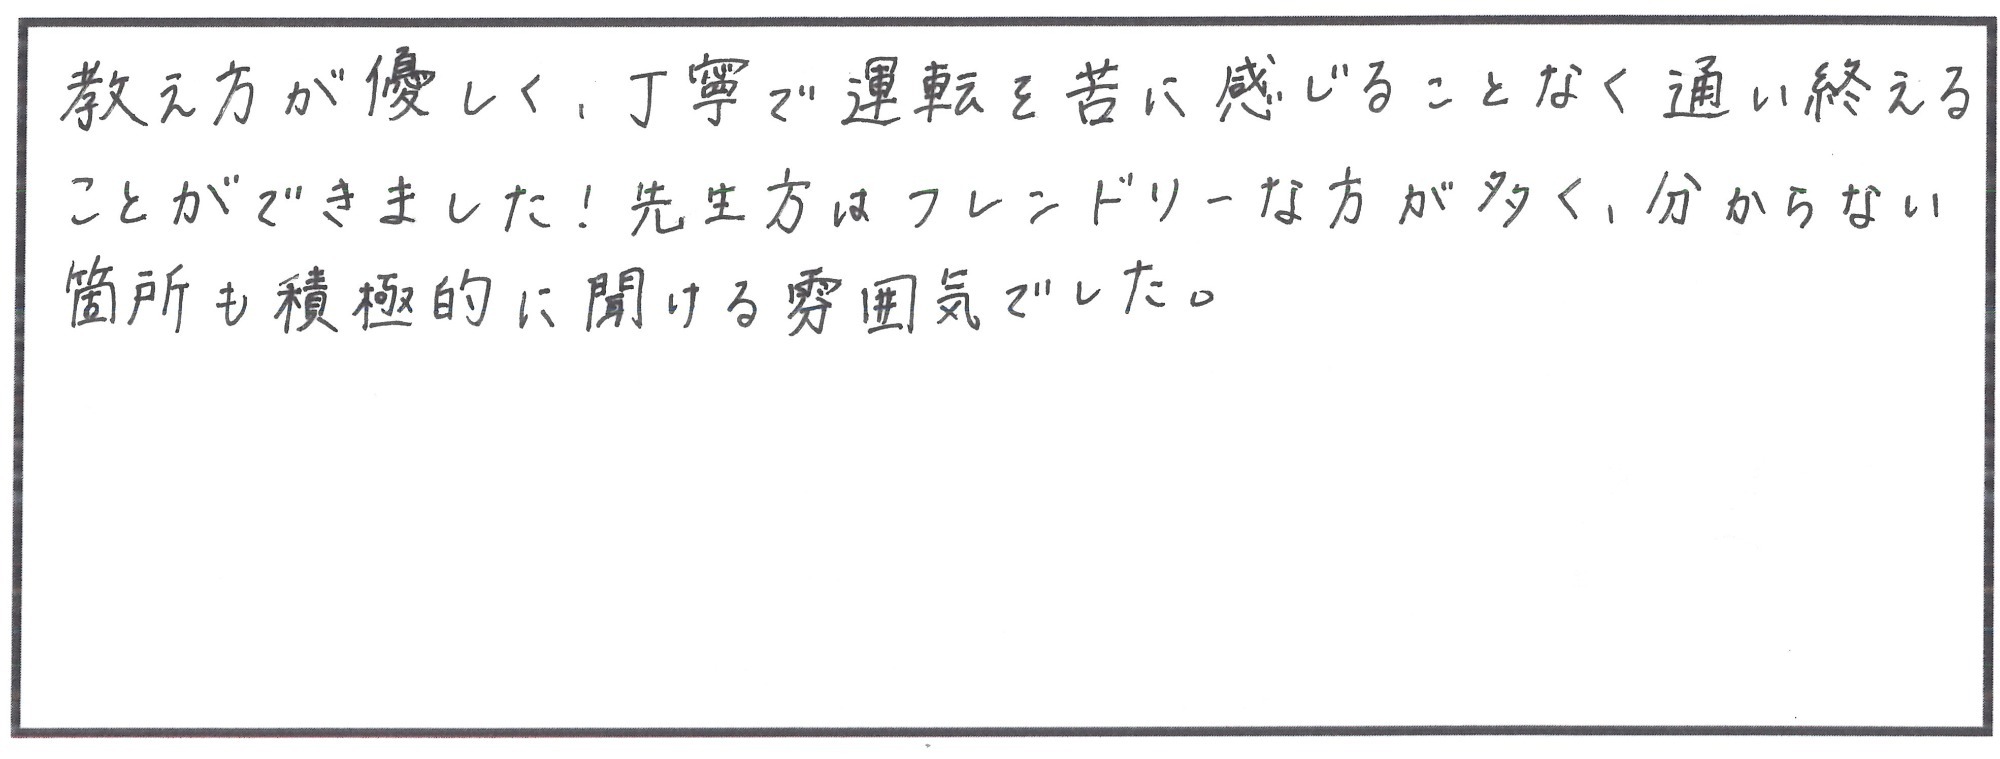 教え方が優しく、丁寧で運転を苦に感じることなく通い終える
ことができました！先生方はフレンドリーな方が多く、分からない
箇所も積極的に聞ける雰囲気でした。